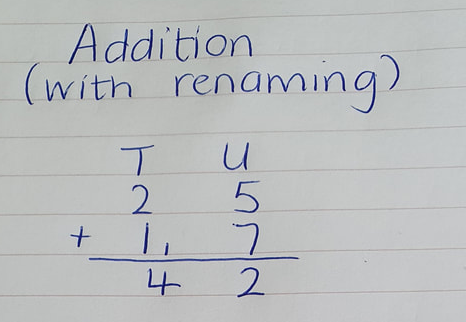 Addition
(with renaming)
T U
2 5
+ 1, 7
4 2